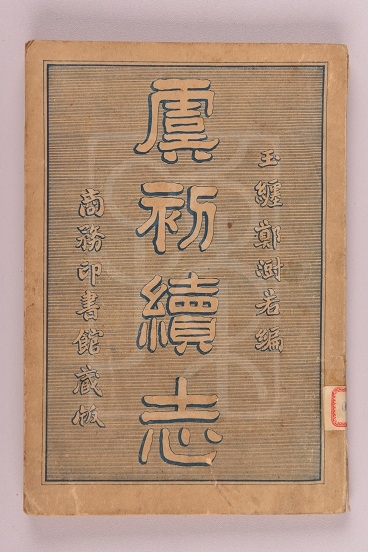 玉纏鄭澍若編
虞初續志
商務印書館藏版